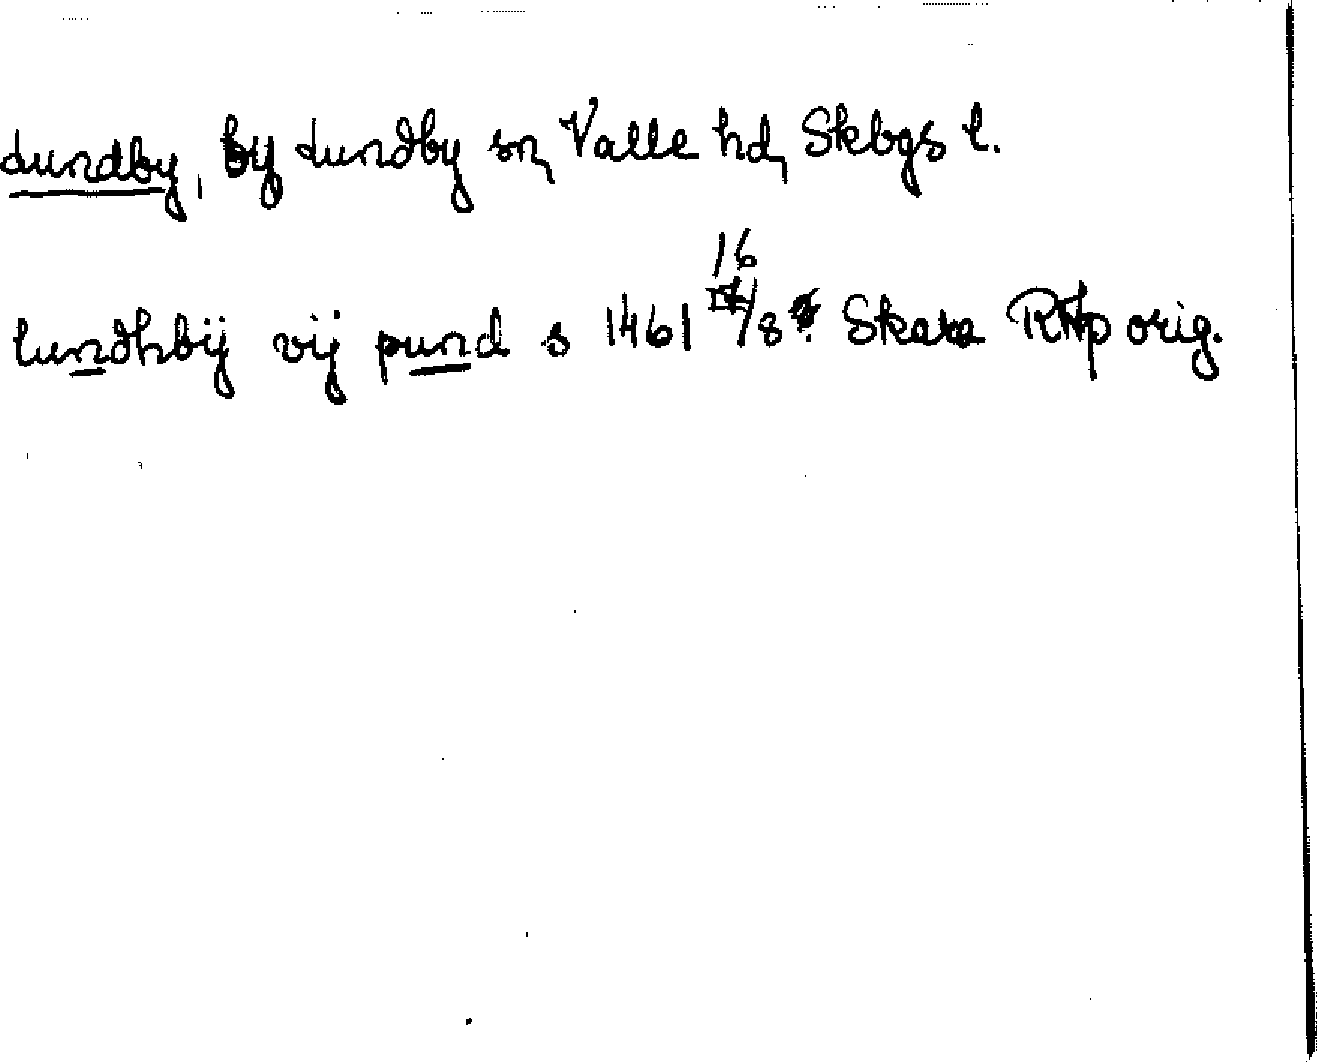 Lundby, by Lundby sn, Valle hd, Skbgs l.
lundhbij vij pund s 1461 16/8 Skara RAp orig.